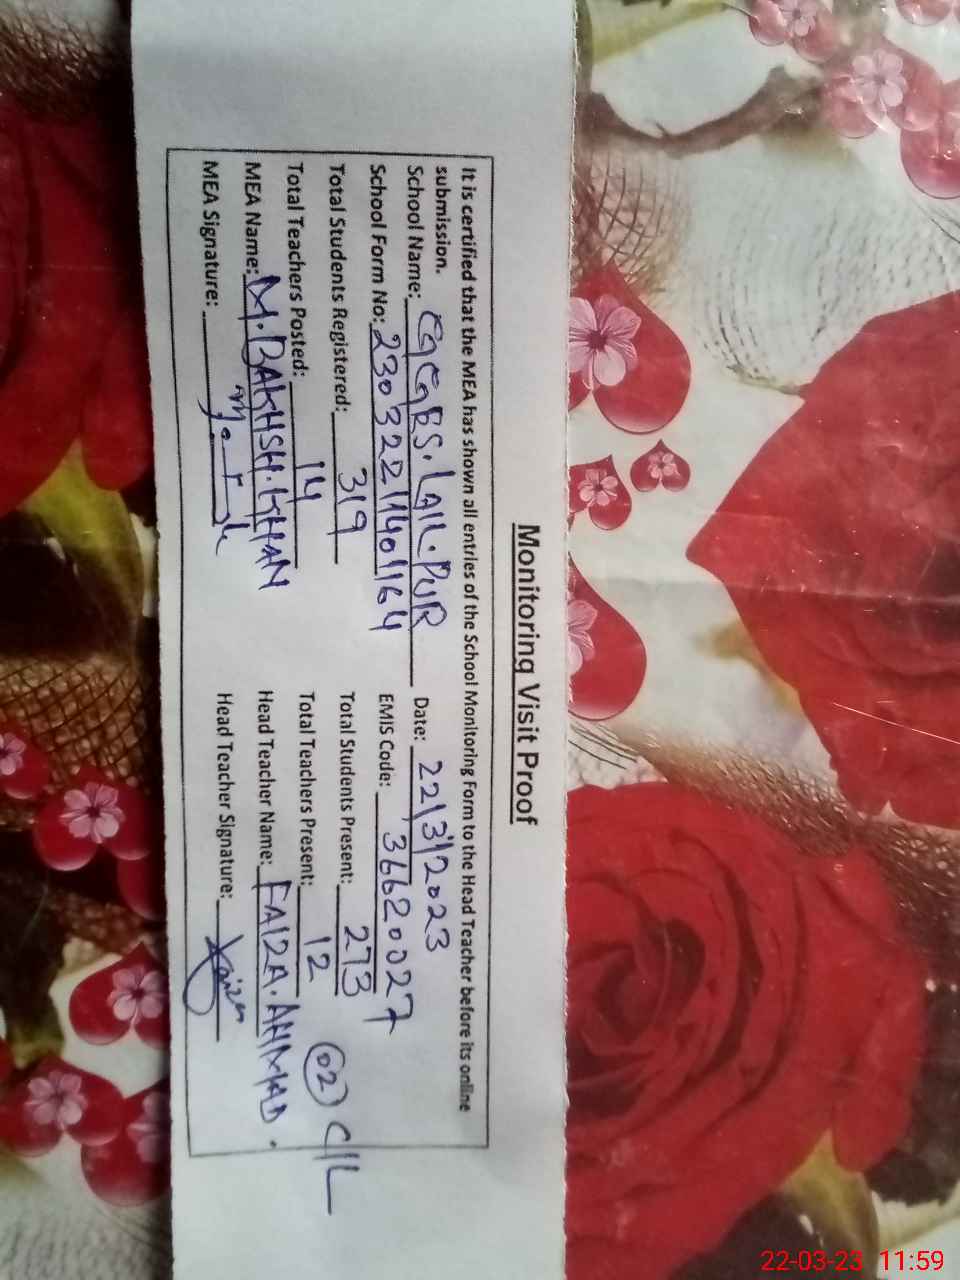 Monitoring Visit Proof
It is certified that the MEA has shown all entries of the School Monitoring Form to the Head Teacher before its online
submission.
School Name: GGGBS. LAIL. PUR Date: 22/3/2023
School Form No: 23032211401164 EMIS Code: 36620027
Total Students Registered: 319 Total Students Present: 273
Total Teachers Posted: 14 Total Teachers Present: 12 (02) C/L
MEA Name: M. BAKHSH. KHAN Head Teacher Name: FAIZA. AHMAD.
MEA Signature: Head Teacher Signature: Faiza
22-03-23 11:59